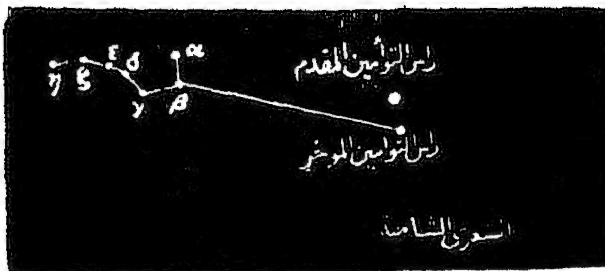 α
راس التوأمين المقدم
η ζ ε δ
γ β
راس التوامين الموخر
الشعرى الشامية